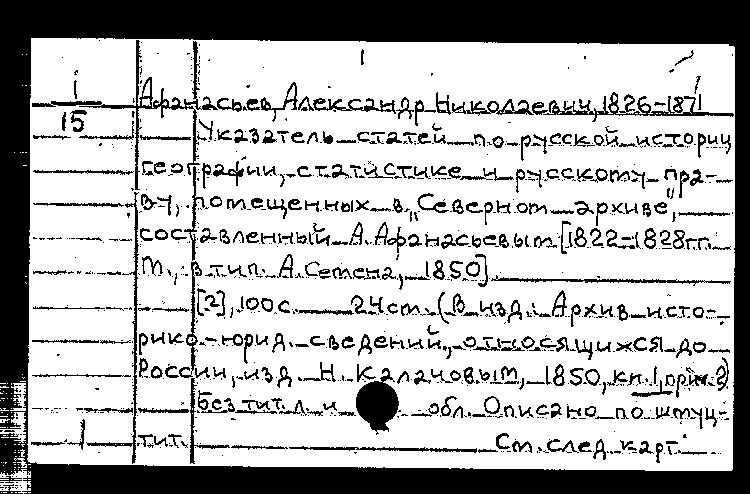 1
1
15
Афанасьев, Александр Николаевич, 1826-1871
Указатель статей по русской истории
географии, статистике и русскому пра-
ву, помещенных в „Северном архиве",
составленный А. Афанасьевым [1822-1828 гг.
М., в тип. А. Семена, 1850].
[2], 100 с. 24 см. (В изд.: Архив исто-
рико-юрид. сведений, относящихся до
России, изд. Н. Калачовым, 1850, кн. 1, прил.)
Без тит. л. и обл. Описано по шмуц-
1 тит. См. след. карт.